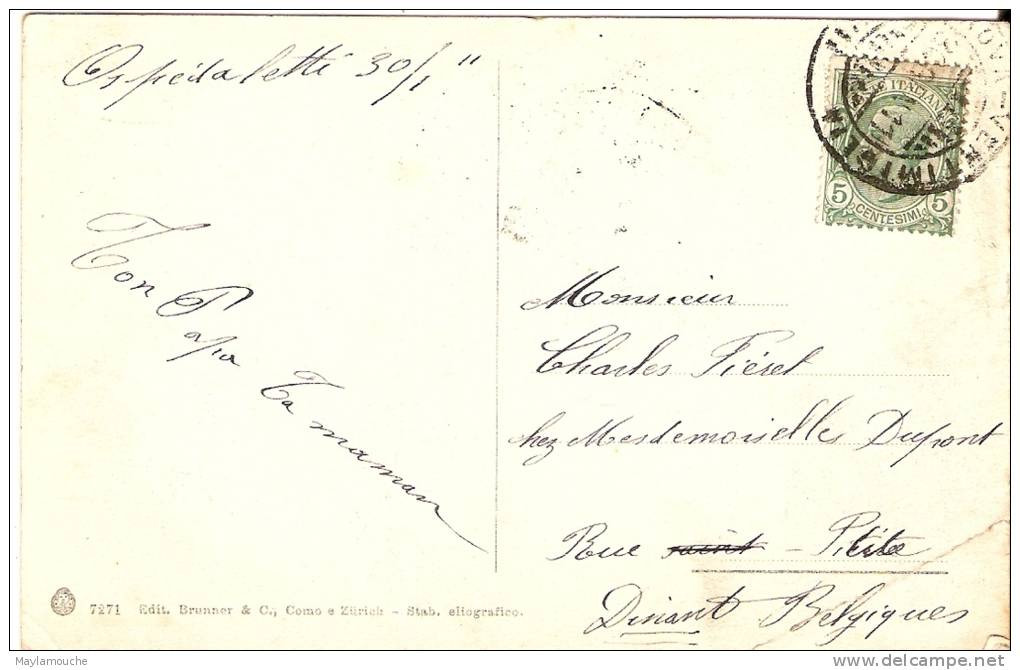 Ospédaletti 30/1 11
Ton Papa Ta maman
5 CENTESIMI 5
Monsieur
Charles Fiéret
chez Mesdemoiselles Dupont
Rue saint - Petite
Dinant Belgiques
7271 Edit. Brunner & C., Como e Zürich - Stab. eliografico.
Maylamouche
delcampe.net